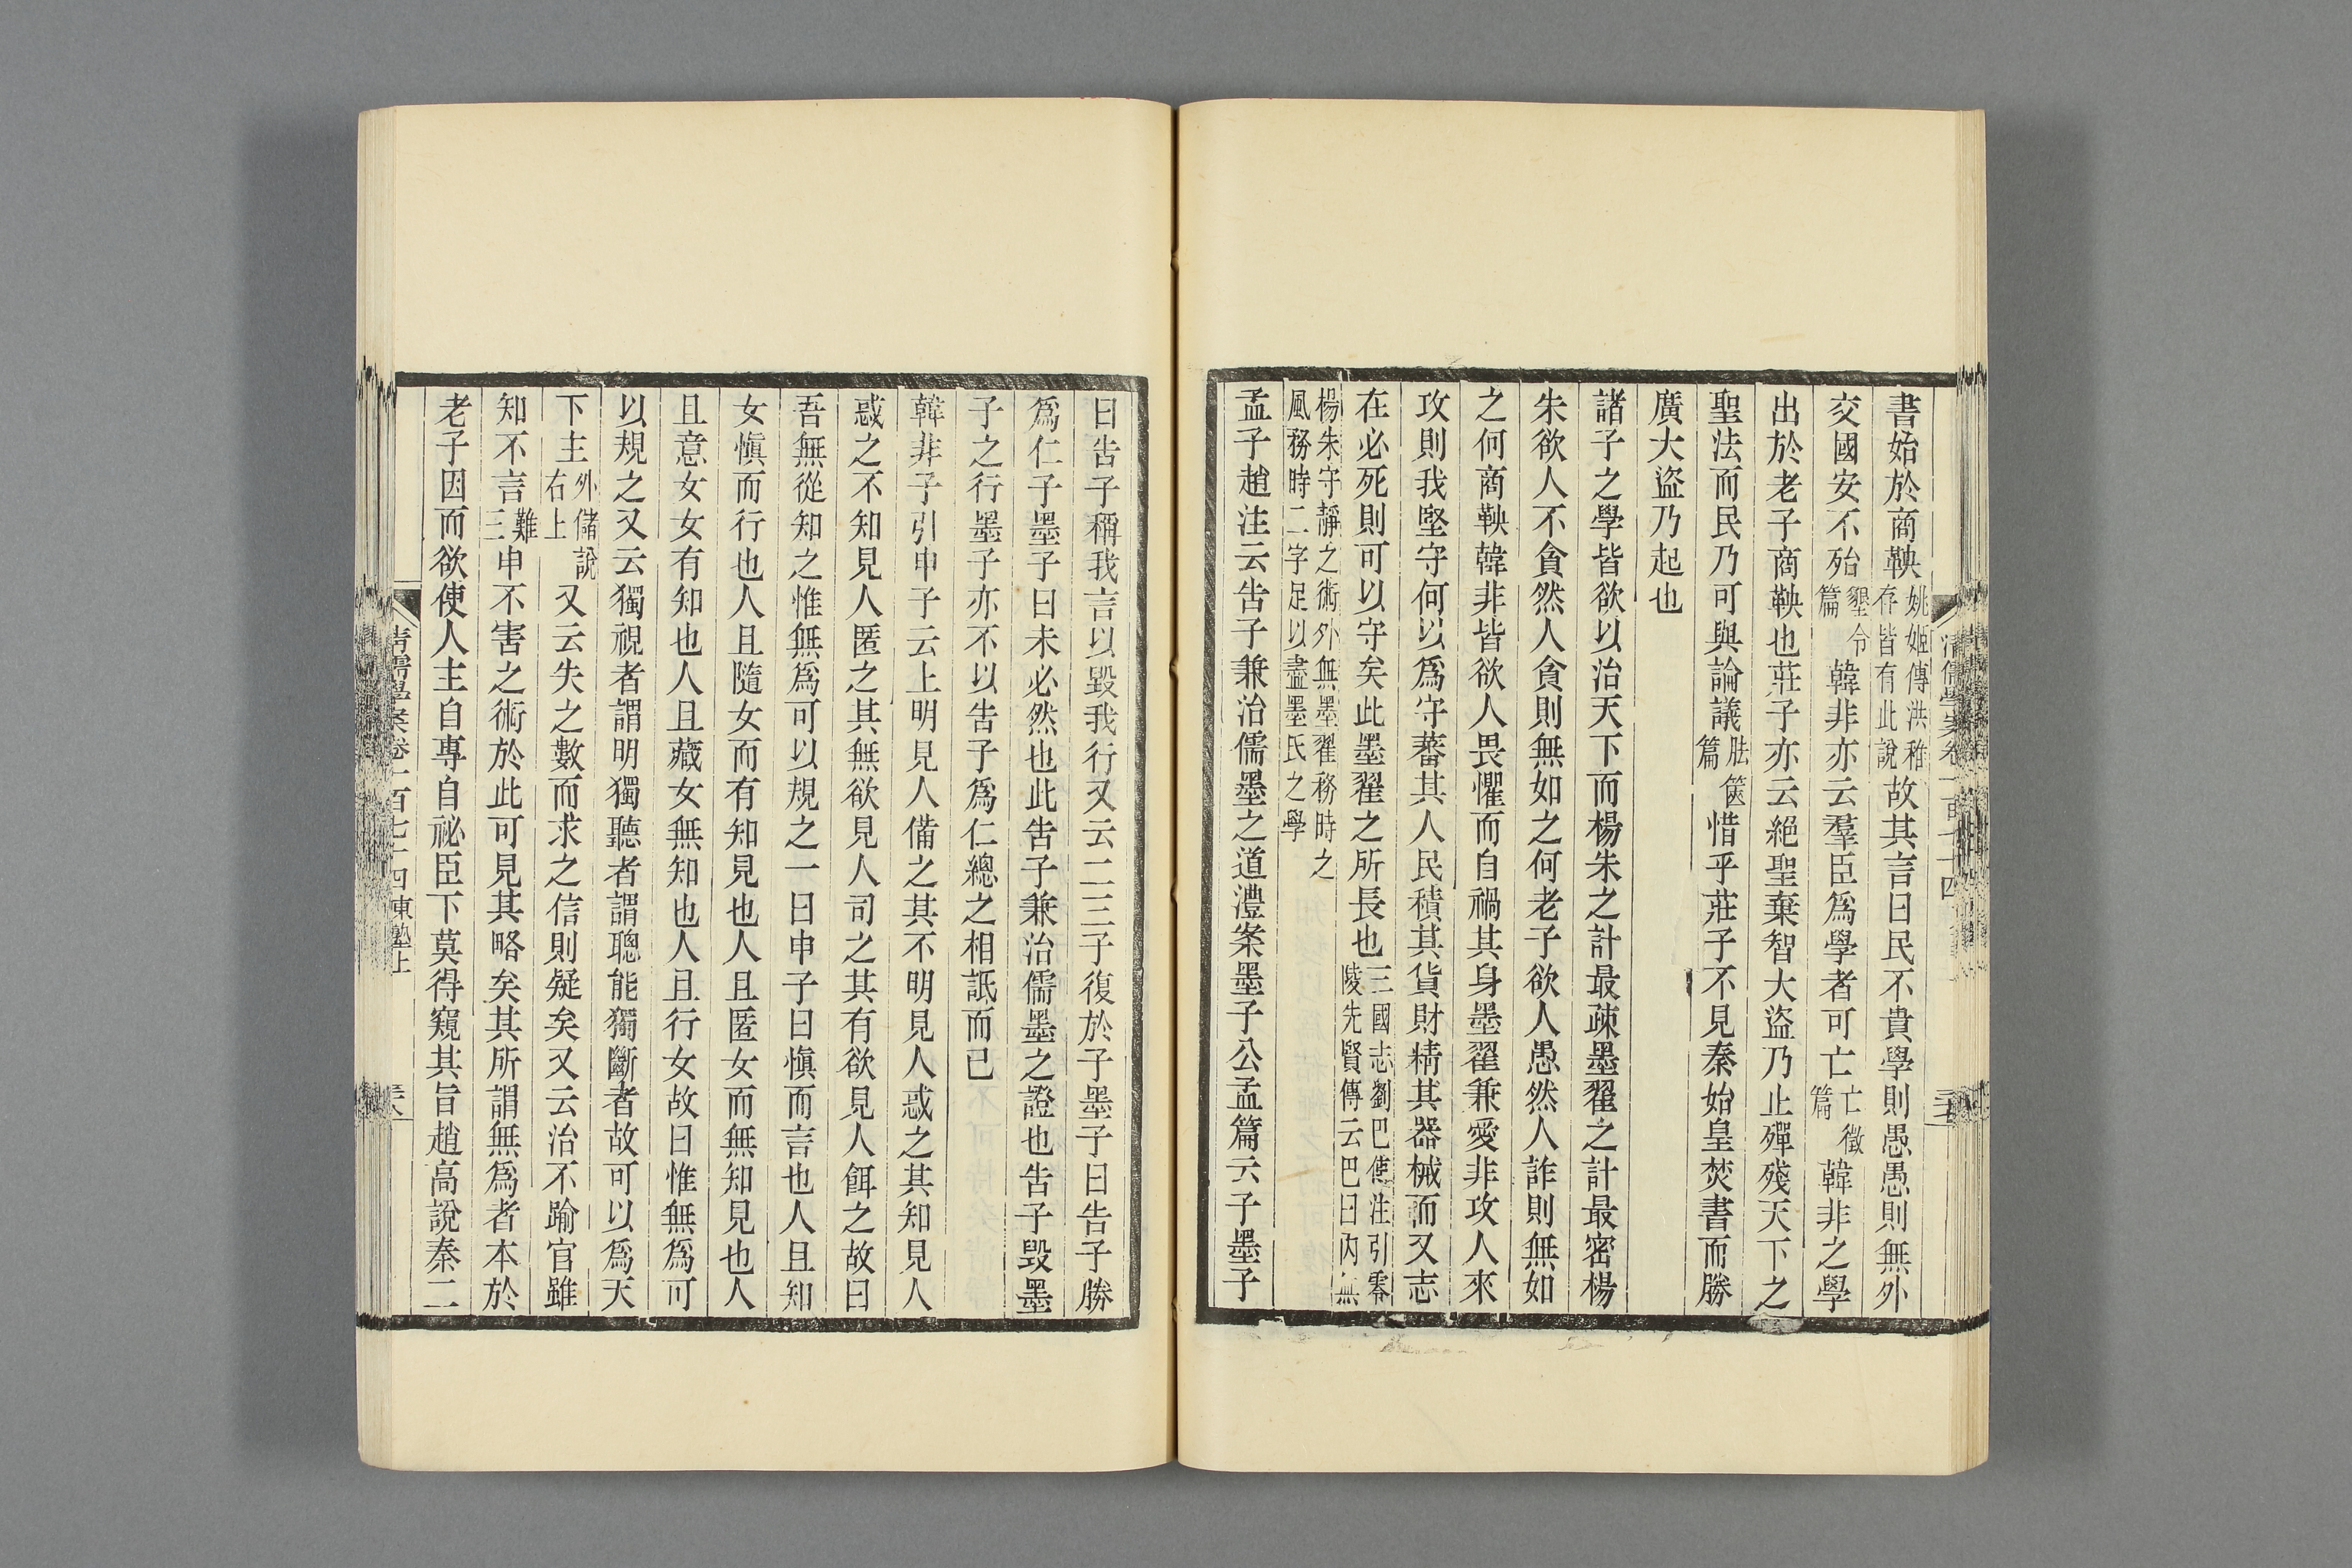 書始於商鞅姚姬傳洪稚存皆有此說故其言曰民不貴學則愚愚則無外
交國安不殆墾令篇韓非亦云羣臣爲學者可亡亡徵篇韓非之學
出於老子商鞅也莊子亦云絕聖棄智大盜乃止殫殘天下之
聖法而民乃可與論議胠篋篇惜乎莊子不見秦始皇焚書而勝
廣大盜乃起也
諸子之學皆欲以治天下而楊朱之計最疎墨翟之計最密楊
朱欲人不貪然人貪則無如之何老子欲人愚然人詐則無如
之何商鞅韓非皆欲人畏懼而自禍其身墨翟兼愛非攻人來
攻則我堅守何以爲守蕃其人民積其貨財精其器械而又志
在必死則可以守矣此墨翟之所長也三國志劉巴傳注引零陵先賢傳云巴曰內無
楊朱守靜之術外無墨翟務時之風務時二字足以盡墨氏之學
孟子趙注云告子兼治儒墨之道澧案墨子公孟篇云子墨子
曰告子稱我言以毀我行又云二三子復於子墨子曰告子勝
爲仁子墨子曰未必然也此告子兼治儒墨之證也告子毀墨
子之行墨子亦不以告子爲仁總之相詆而已
韓非子引申子云上明見人備之其不明見人惑之其知見人
惑之不知見人匿之其無欲見人司之其有欲見人餌之故曰
吾無從知之惟無爲可以規之一曰申子曰愼而言也人且知
女愼而行也人且隨女而有知見也人且匿女而無知見也人
且意女女有知也人且藏女無知也人且行女故曰惟無爲可
以規之又云獨視者謂明獨聽者謂聰能獨斷者故可以爲天
下主外儲說右上又云失之數而求之信則疑矣又云治不踰官雖
知不言難三申不害之術於此可見其略矣其所謂無爲者本於
老子因而欲使人主自專自祕臣下莫得窺其旨趙高說秦二
清儒學案卷一百七十四東塾上